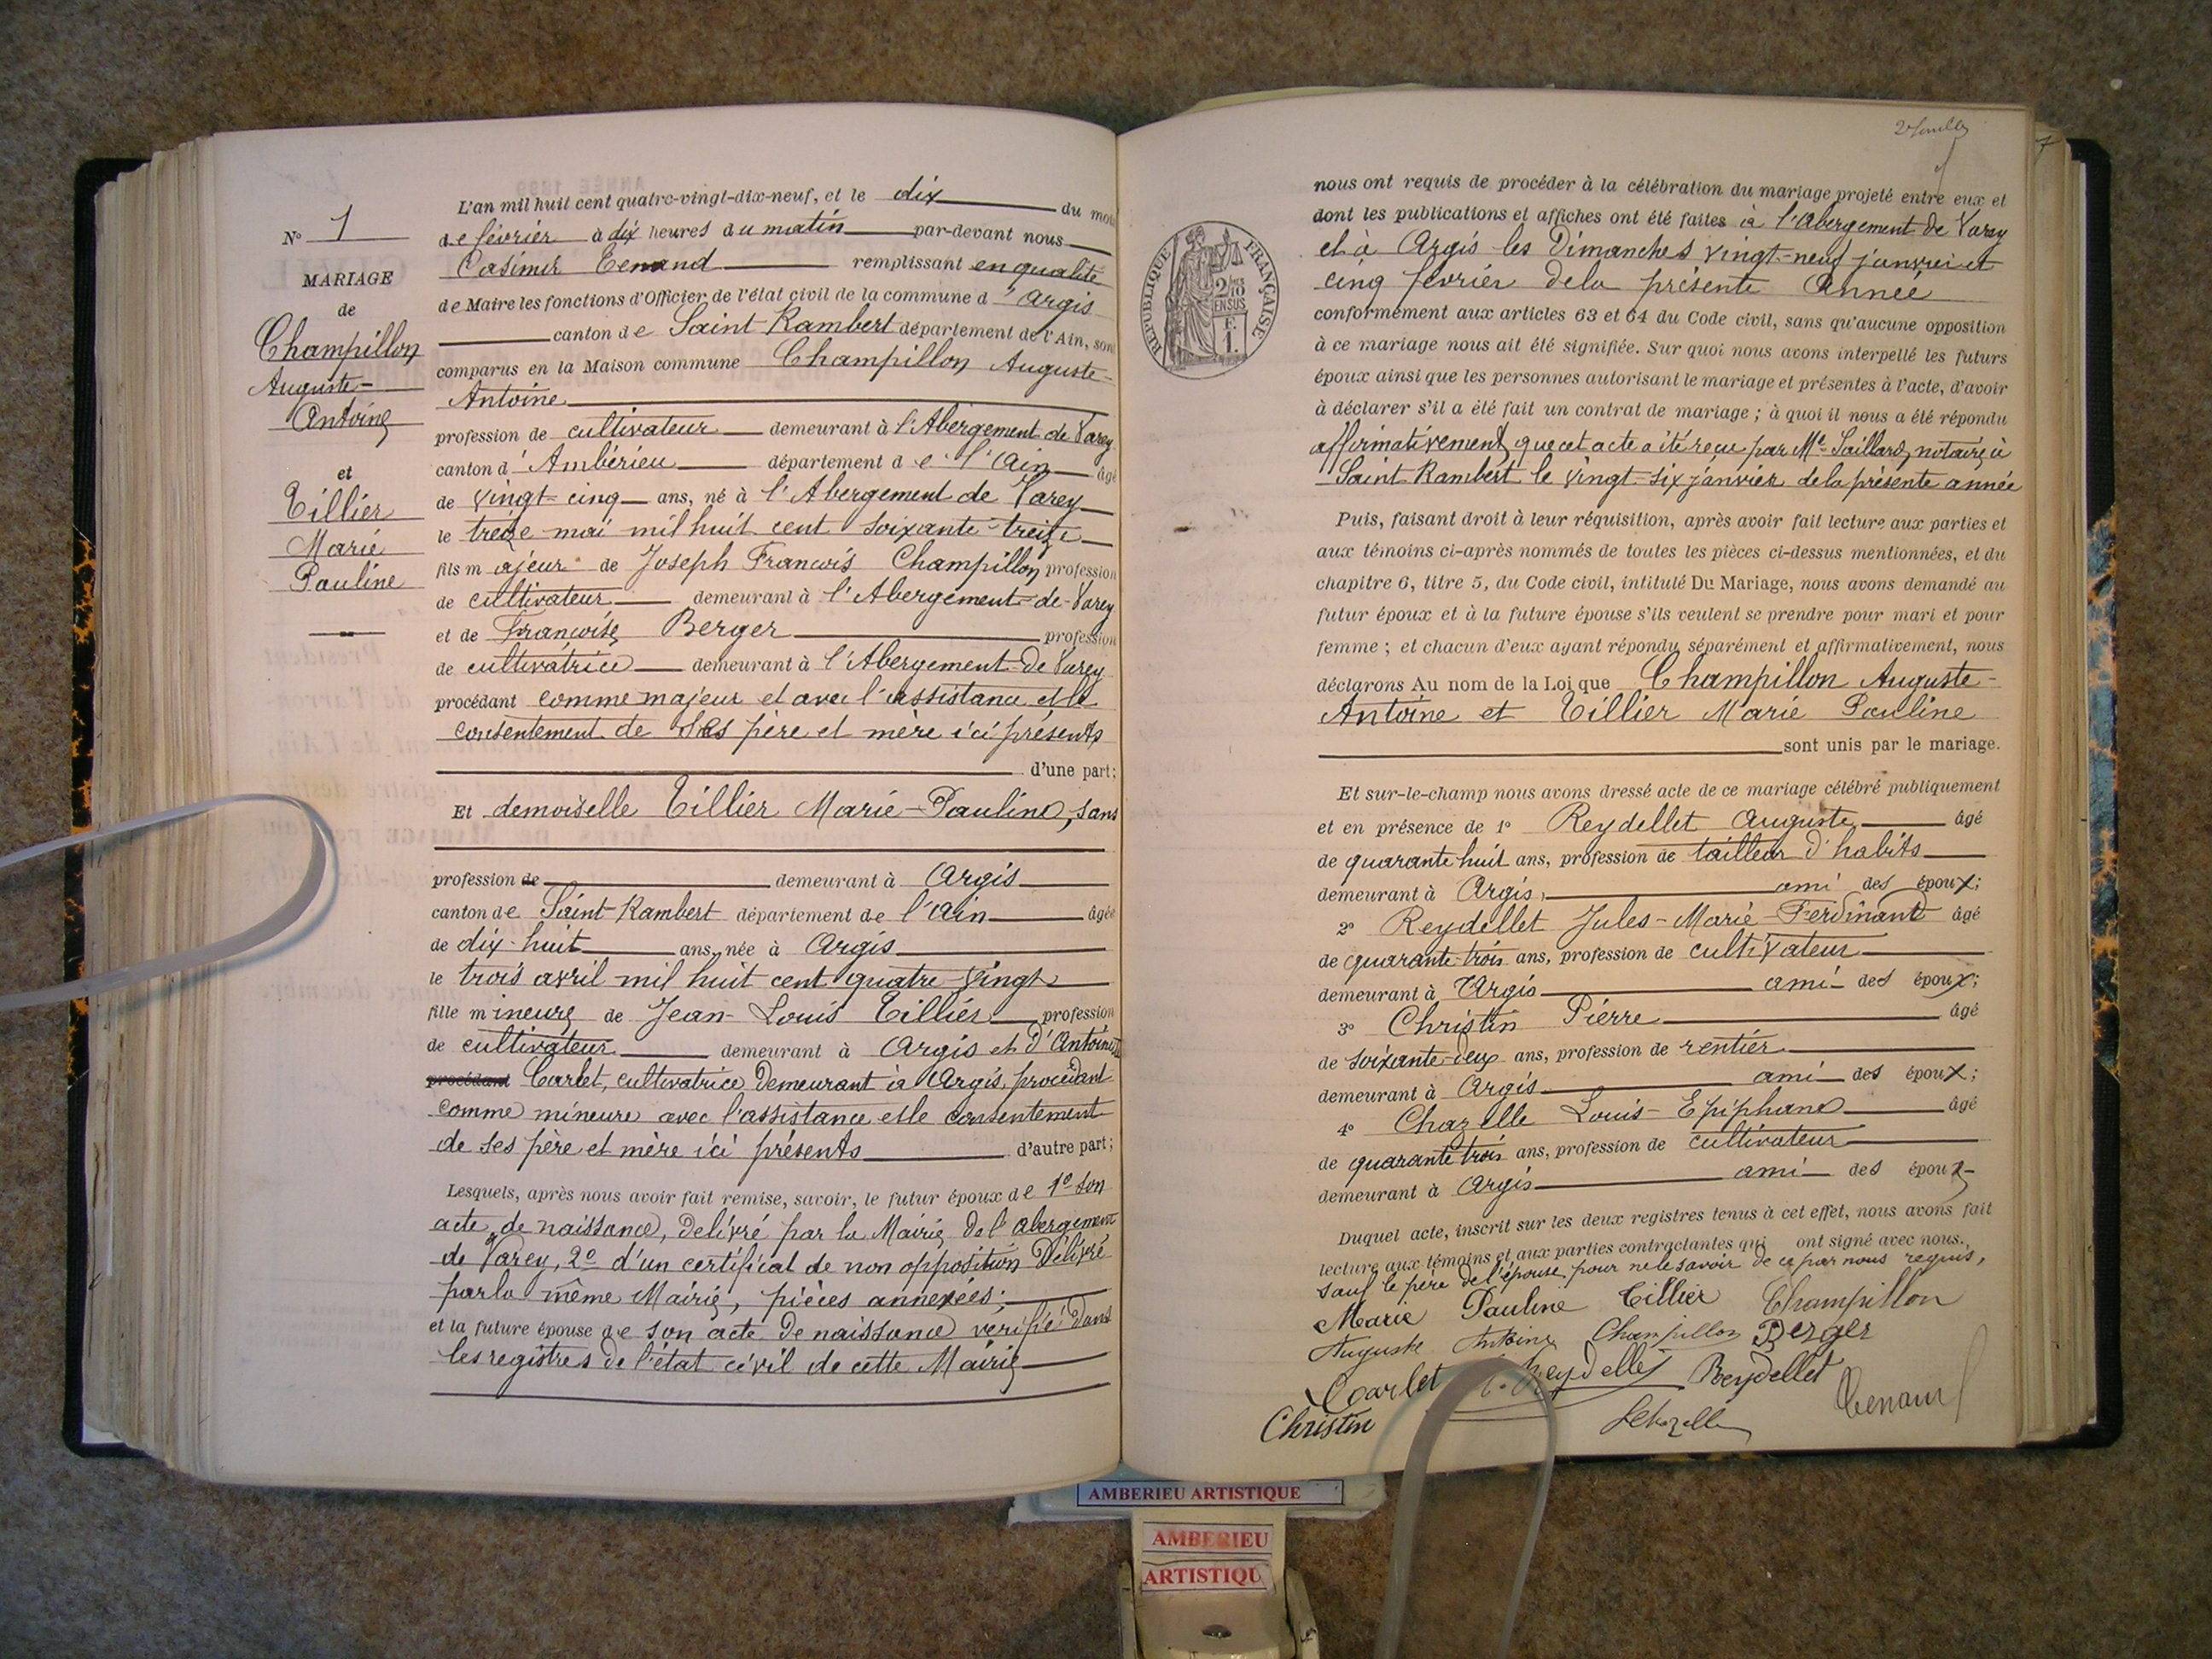 N° 1
MARIAGE
de
Champillon
Auguste-
Antoine
et
Tillier
Marie
Pauline
L'an mil huit cent quatre-vingt-dix-neuf, et le dix du mois
de février à dix heures du matin par-devant nous
Casimir Tenand remplissant en qualité
de Maire les fonctions d'Officier de l'état civil de la commune d'Argis
canton de Saint Rambert département de l'Ain, sont
comparus en la Maison commune Champillon Auguste-
Antoine
profession de cultivateur demeurant à l'Abergement de Varey
canton d'Ambérieu département de l'Ain âgé
de vingt-cinq ans, né à l'Abergement de Varey
le treize mai mil huit cent soixante-treize
fils majeur de Joseph Francois Champillon profession
de cultivateur demeurant à l'Abergement-de-Varey
et de Françoise Berger profession
de cultivatrice demeurant à l'Abergement-de Varey
procédant comme majeur et avec l'assistance et le
consentement de ses père et mère ici présents
d'une part;
Et demoiselle Tillier Marie-Pauline, sans
profession de demeurant à Argis
canton de Saint-Rambert département de l'Ain âgée
de dix-huit ans, née à Argis
le trois avril mil huit cent quatre-vingt
fille mineure de Jean-Louis Tillier profession
de cultivateur demeurant à Argis et d'Antoinette
procédant Carlet, cultivatrice demeurant à Argis, procédant
comme mineure avec l'assistance et le consentement
de ses père et mère ici présents d'autre part;
Lesquels, après nous avoir fait remise, savoir, le futur époux de 1° son
acte de naissance, délivré par la Mairie de l'Abergement
de Varey, 2° d'un certificat de non opposition délivré
par la même Mairie, pièces annexées;
et la future épouse de son acte de naissance verifié dans
les registres de l'état civil de cette Mairie
7
RÉPUBLIQUE FRANÇAISE
2/10
EN SUS
F.
1.
nous ont requis de procéder à la célébration du mariage projeté entre eux et
dont les publications et affiches ont été faites à l'Abergement de Varey
et à Argis les Dimanches vingt-neuf janvier et
cinq février de la présente Année
conformément aux articles 63 et 64 du Code civil, sans qu'aucune opposition
à ce mariage nous ait été signifiée. Sur quoi nous avons interpellé les futurs
époux ainsi que les personnes autorisant le mariage et présentes à l'acte, d'avoir
à déclarer s'il a été fait un contrat de mariage; à quoi il nous a été répondu
affirmativement, que cet acte a été reçu par Me Saillard, notaire à
Saint-Rambert le vingt-six janvier de la présente année
Puis, faisant droit à leur réquisition, après avoir fait lecture aux parties et
aux témoins ci-après nommés de toutes les pièces ci-dessus mentionnées, et du
chapitre 6, titre 5, du Code civil, intitulé Du Mariage, nous avons demandé au
futur époux et à la future épouse s'ils veulent se prendre pour mari et pour
femme; et chacun d'eux ayant répondu séparément et affirmativement, nous
déclarons Au nom de la Loi que Champillon Auguste-
Antoine et Tillier Marie Pauline
sont unis par le mariage.
Et sur-le-champ nous avons dressé acte de ce mariage célébré publiquement
et en présence de 1° Reydellet Auguste âgé
de quarante huit ans, profession de tailleur d'habits
demeurant à Argis, ami des époux;
2° Reydellet Jules-Marie-Ferdinand âgé
de quarante-trois ans, profession de cultivateur
demeurant à Argis ami des époux;
3° Christin Pierre âgé
de soixante-deux ans, profession de rentier
demeurant à Argis ami des époux;
4° Chazelle Louis-Epiphane âgé
de quarante trois ans, profession de cultivateur
demeurant à Argis ami des époux
Duquel acte, inscrit sur les deux registres tenus à cet effet, nous avons fait
lecture aux témoins et aux parties contractantes qui ont signé avec nous.,
sauf le père de l'épouse pour ne le savoir de ce par nous requis,
Marie Pauline Tillier Champillon
Auguste Antoine Champillon Berger
Carlet Reydellet Reydellet
Christin Tenand
AMBERIEU ARTISTIQUE
AMBERIEU
ARTISTIQU